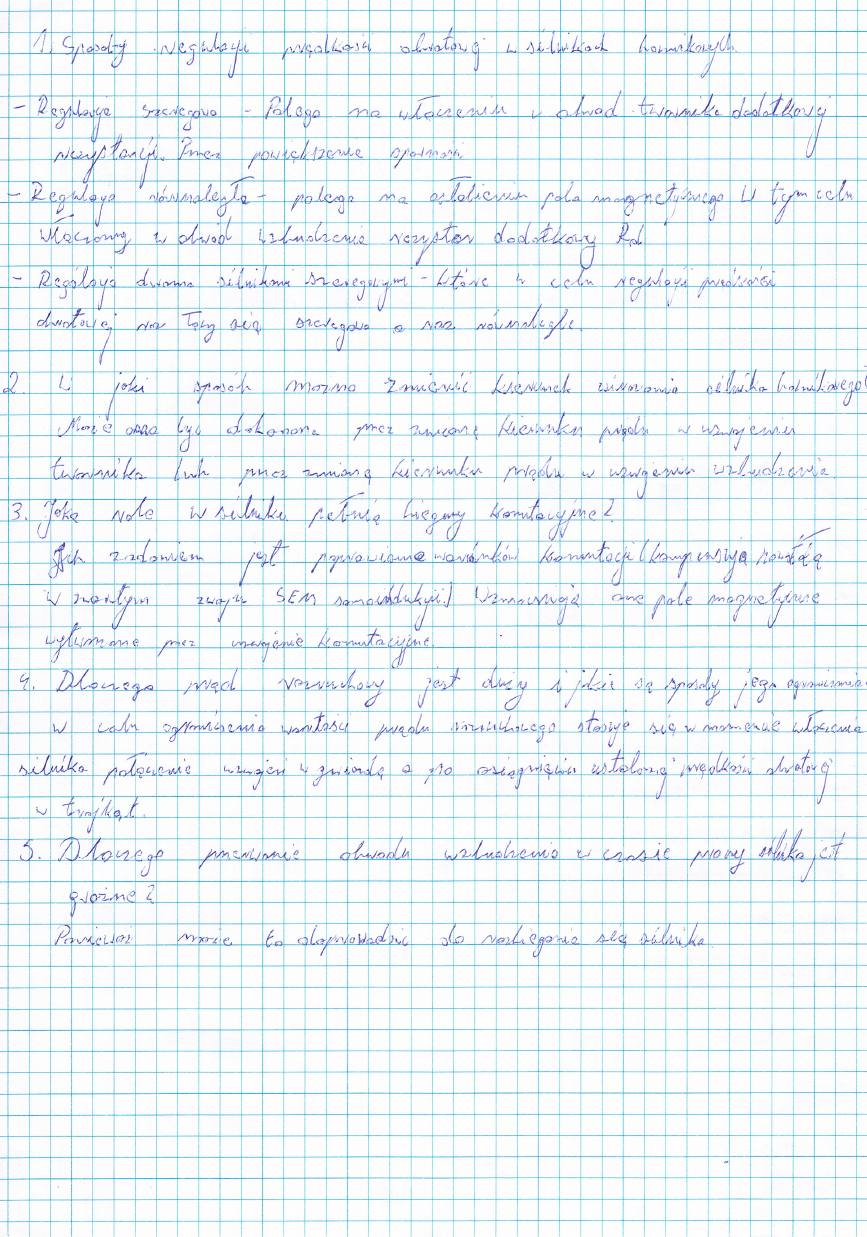 1. Sposoby regulacji prędkości obrotowej w silnikach bocznikowych.
- Regulacja szeregowa - Polega na włączeniu w obwod twornika dodatkowej
rezystancji. Przez powiększenie oporności
- Regulacja równoległa - polega na osłabieniu pola magnetycznego W tym celu
włączamy w obwód wzbudzenia rezystor dodatkowy Rd
- Regulacja dwoma silnikami szeregowymi - które w celu regulacji prędkości
obrotowej raz łączy się szeregowo a raz równolegle.
2. W jaki sposób można zmienić kierunek wirowania silnika bocznikowego?
Może ona być dokonana przez zmianę kierunku prądu w uzwojeniu
twornika lub przez zmianę kierunku prądu w uzwojeniu wzbudzenia.
3. Jaką role w silniku pełnią bieguny komutacyjne?
Ich zadaniem jest poprawienie warunków komutacji (kompensują powstałą
w zwartym zwoju SEM samoindukcji.) Wzmacniają one pole magnetyczne
wytworzone przez uzwojenie komutacyjne.
4. Dlaczego prąd rozruchowy jest duży i jakie są sposoby jego ograniczenia
w celu ograniczenia wartości prądu rozruchowego stosuje się w momencie włączenia
silnika połączenie uzwojeń w gwiazdę a po osiągnięciu ustalonej prędkości obrotowej
w trójkąt.
5. Dlaczego przerwanie obwodu wzbudzenia w czasie pracy silnika jest
groźne?
Ponieważ może to doprowadzić do rozbiegania się silnika.